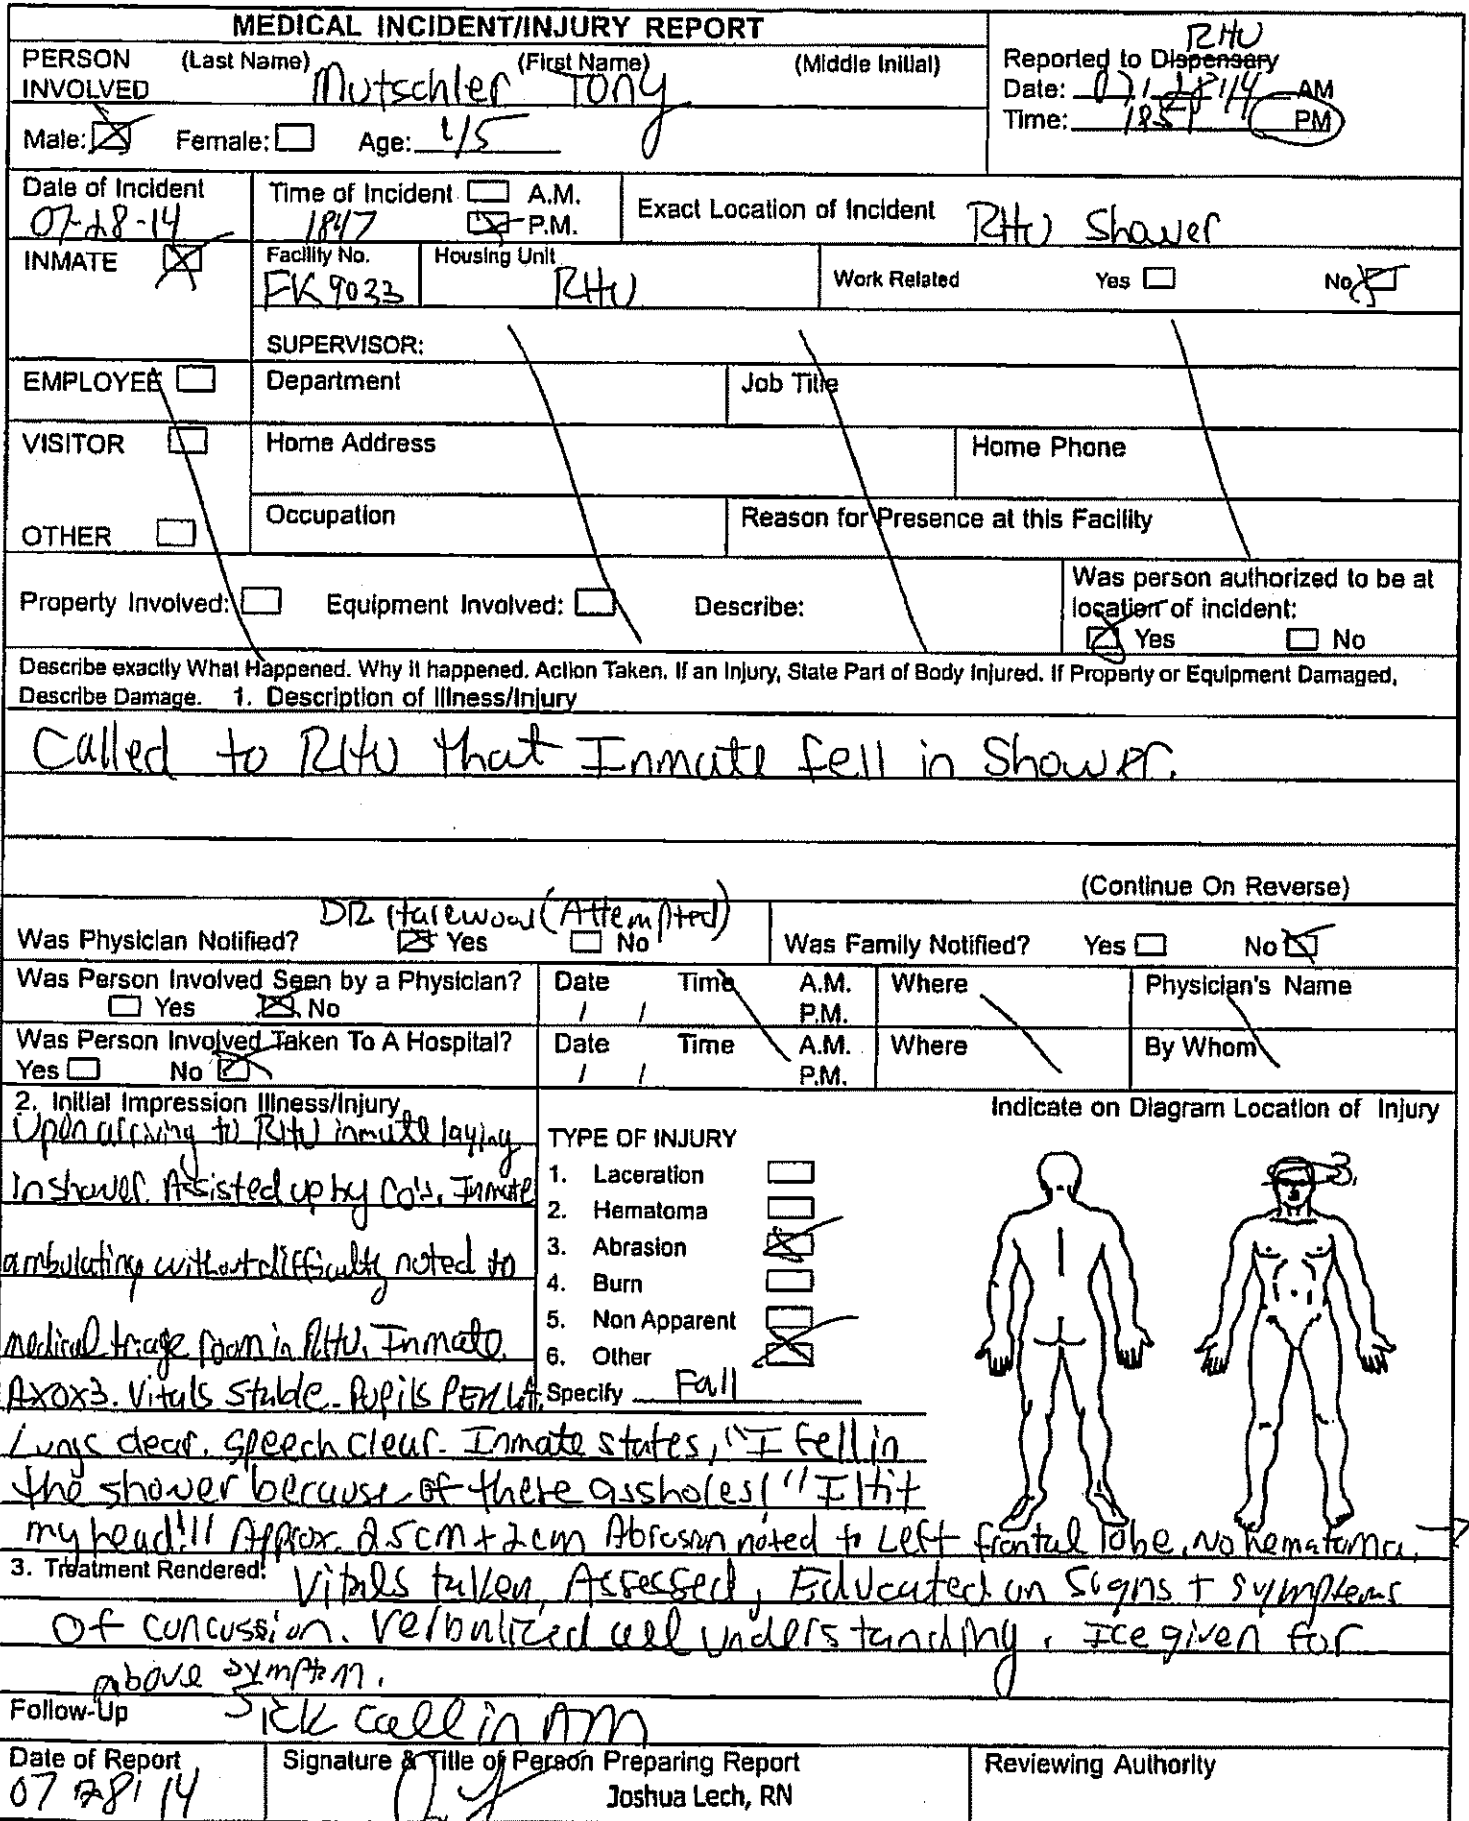 MEDICAL INCIDENT/INJURY REPORT
RHU
Reported to Dispensary
PERSON INVOLVED (Last Name) Mutschler (First Name) Tony (Middle Initial)
Date: 07/28/14 AM
Time: 1851 PM
Male: Female: Age: 45
Date of Incident 07-28-14
Time of Incident A.M. 1847 P.M.
Exact Location of Incident RHU Shower
INMATE
Facility No. FK9033
Housing Unit RHU
Work Related Yes No
SUPERVISOR:
EMPLOYEE Department Job Title
VISITOR Home Address Home Phone
OTHER Occupation Reason for Presence at this Facility
Property Involved: Equipment Involved: Describe:
Was person authorized to be at
location of incident:
Yes No
Describe exactly What Happened. Why it happened. Action Taken. If an Injury, State Part of Body Injured. If Property or Equipment Damaged,
Describe Damage. 1. Description of Illness/Injury
Called to RHU that Inmate fell in Shower.
(Continue On Reverse)
DR. Harewood (Attempted)
Was Physician Notified? Yes No Was Family Notified? Yes No
Was Person Involved Seen by a Physician? Yes No
Date / / Time A.M. P.M. Where Physician's Name
Was Person Involved Taken To A Hospital? Yes No
Date / / Time A.M. P.M. Where By Whom
2. Initial Impression Illness/Injury
Upon arriving to RHU inmate laying
in shower. Assisted up by CO's. Inmate
ambulating without difficulty noted to
medical triage room in RHU. Inmate
AXOX3. Vitals Stable. Pupils PERLA.
Lungs clear. Speech clear. Inmate states, "I fell in
the shower because of these assholes!" I Hit
my head!!! Approx. 2.5cm x 2cm Abrasion noted to Left frontal lobe. No hematoma. →
TYPE OF INJURY
1. Laceration
2. Hematoma
3. Abrasion
4. Burn
5. Non Apparent
6. Other
Specify Fall
Indicate on Diagram Location of Injury
3.
3. Treatment Rendered: Vitals taken, Assessed, Educated on Signs + symptoms
of concussion. Verbalized understanding. Ice given for
above symptom.
Follow-Up Sick call in AM
Date of Report 07/28/14
Signature & Title of Person Preparing Report
Joshua Lech, RN
Reviewing Authority